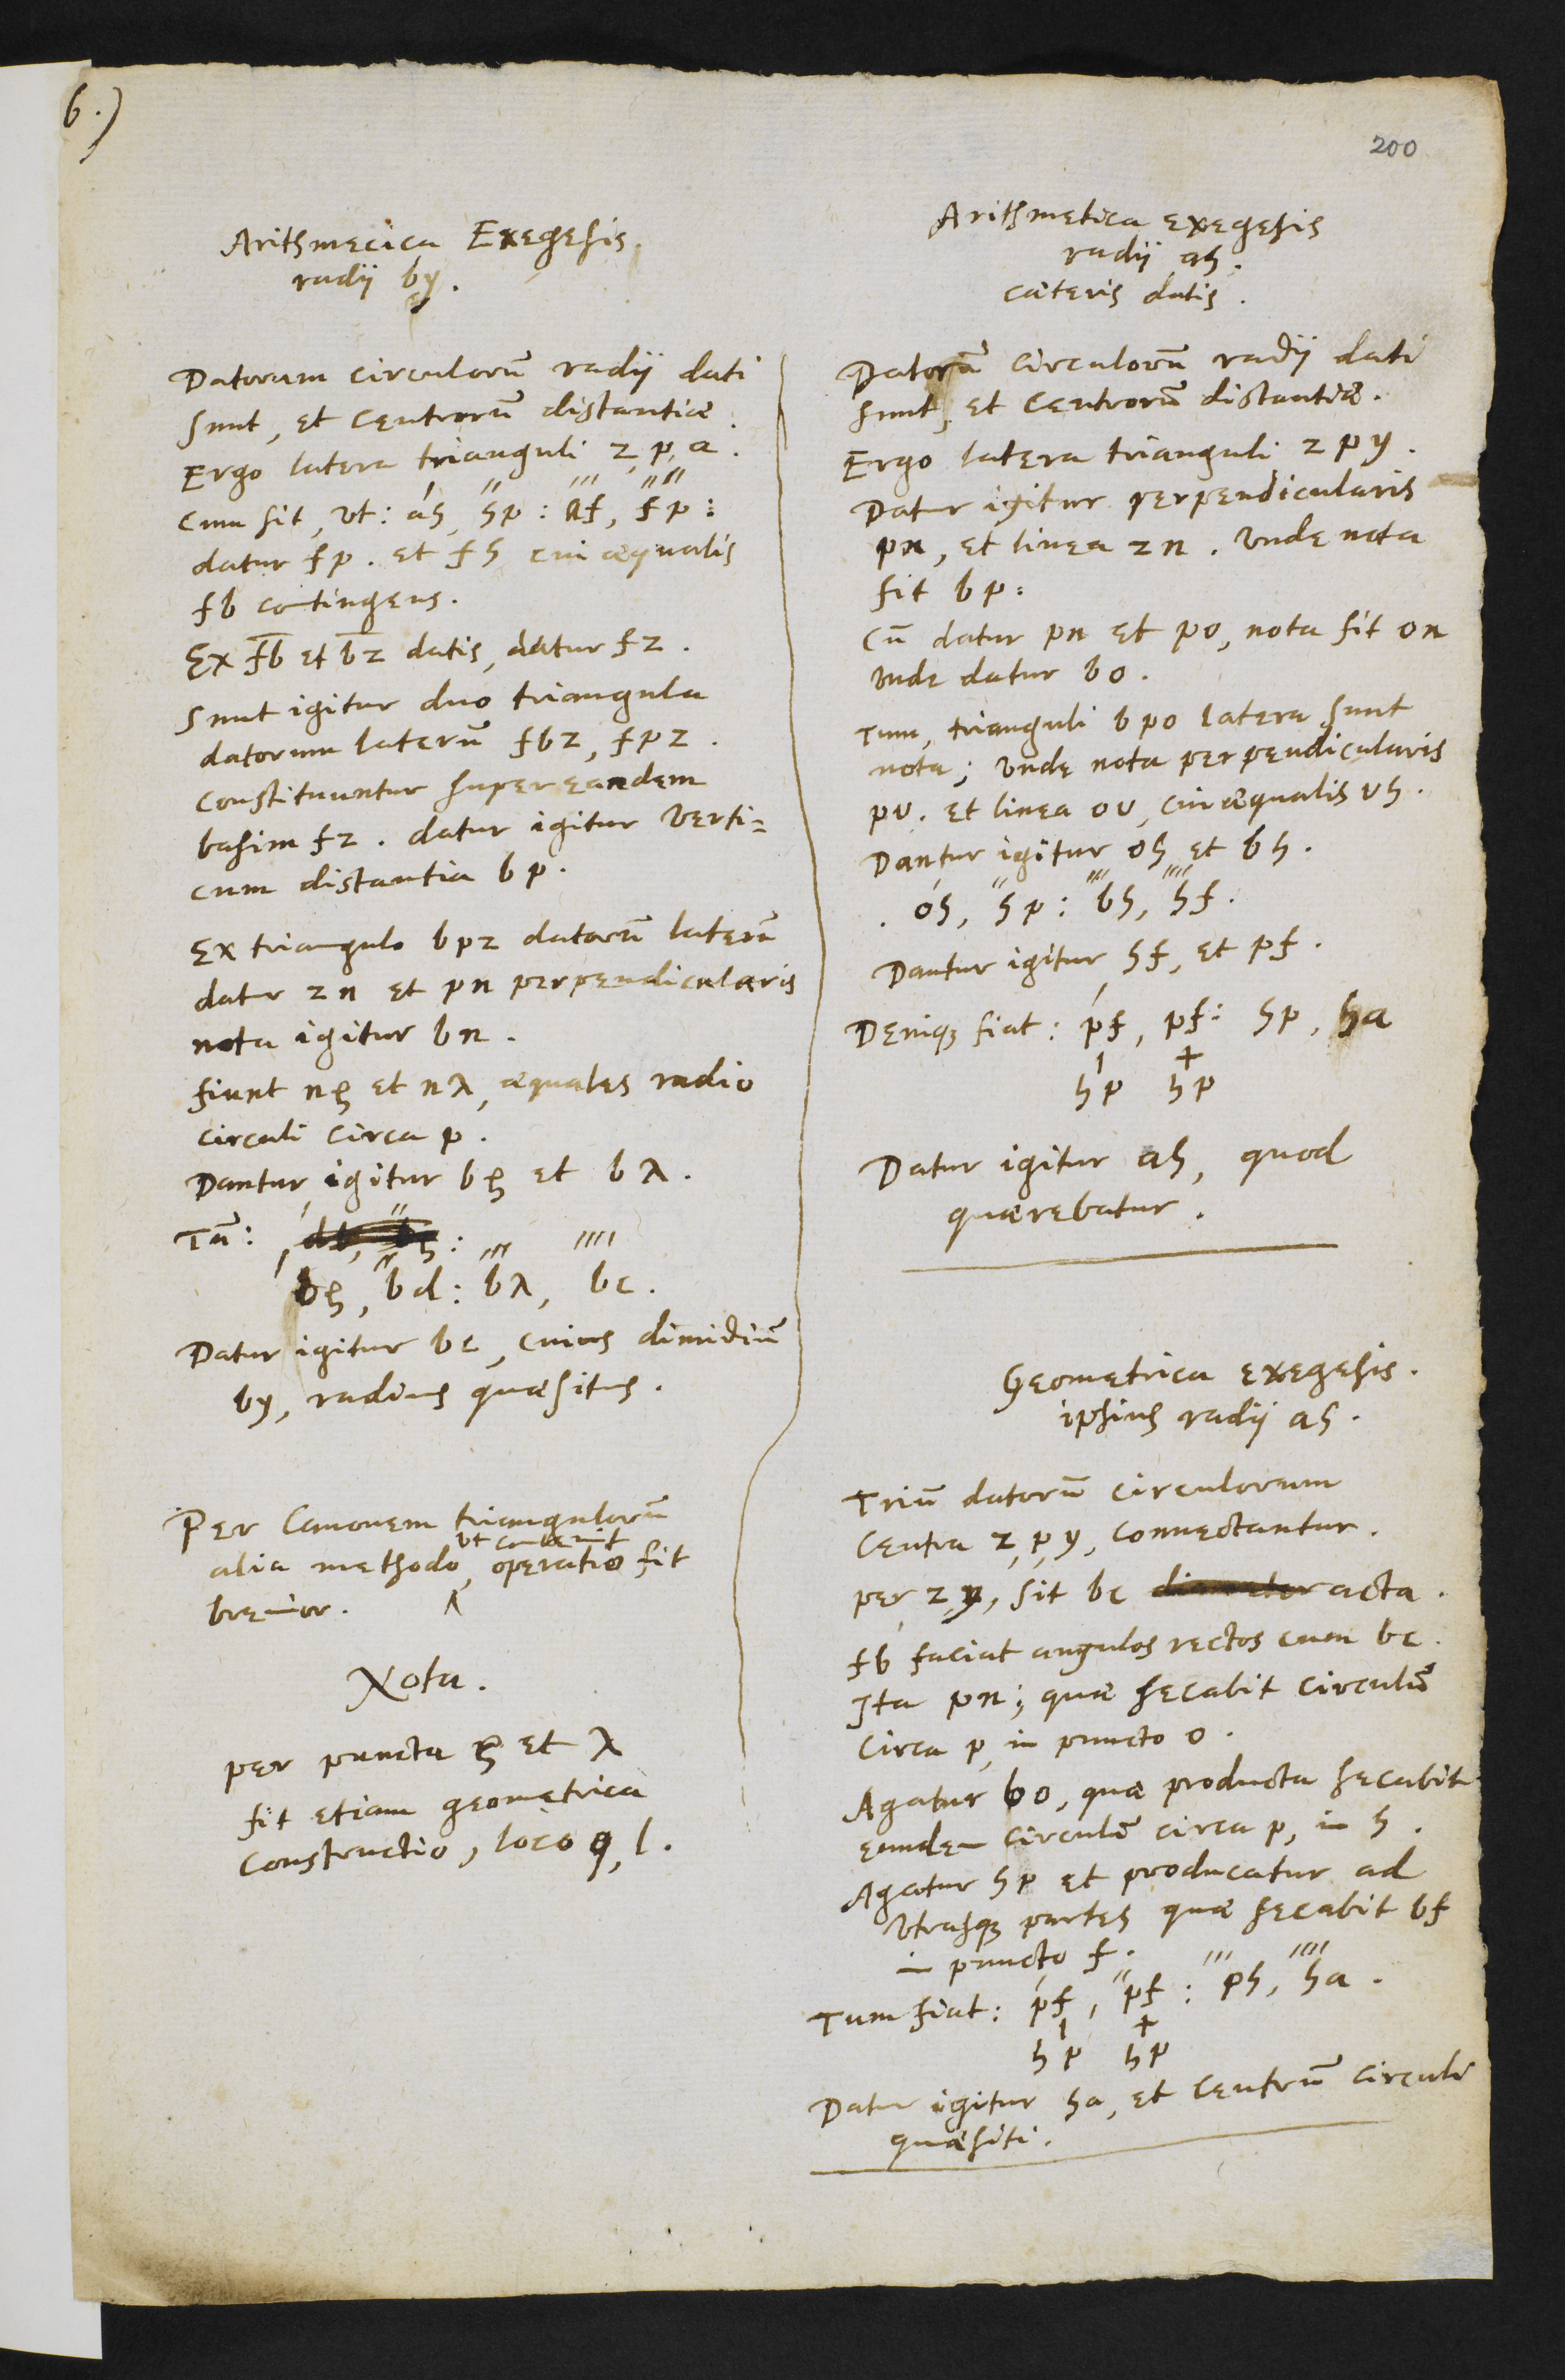 6.)
200
Arithmecica Exegesis.
radij by.
Datorum circulorū radij dati
sunt, et centrorū distantiæ.
Ergo latera trianguli z, p, a.
Cum sit, ut: ah, hp: af, fp:
datur fp. et fh cui æqualis
fb contingens.
Ex fb et bz datis, datur fz.
Sunt igitur duo triangula
datorum laterū fbz, fpz.
Constituuntur super eandem
basim fz. datur igitur verti=
cum distantia bp.
Ex triangulo bpz datorū laterū
datur zn et pn perpendicularis
nota igitur bn.
fiunt nξ et nλ, æquales radio
circuli circa p.
Dantur igitur bξ et bλ.
Tū:
bξ, bd: bλ, bc.
Datur igitur bc, cuius dimidiū
by, radius quæsitus.
Per Canonem triangulorū
ut convenit
alia methodo, operatio fit
brevior.
Nota.
per puncta ξ et λ
fit etiam geometrica
constructio, loco q, l.
Arithmetica exegesis
radij ah.
cæteris datis.
Datorū circulorū radij dati
sunt, et centrorū distantiæ.
Ergo latera trianguli zpy.
Datur igitur perpendicularis
pn, et linea zn. unde nota
fit bp:
Cū datur pn et po, nota fit on
unde datur bo.
Tum, trianguli bpo latera sunt
nota; unde nota perpendicularis
pv. et linea ov, cui æqualis vh.
Dantur igitur oh et bh.
. oh, hp: bh, hf.
Dantur igitur hf, et pf.
Deniq fiat: pf, pf: hp, ha
- +
hp hp
Datur igitur ah, quod
quærebatur.
Geometrica exegesis.
ipsius radij ah.
Triū datorū circulorum
centra z, p, y, connectantur.
per z, y, sit bc diameter acta.
fb faciat angulos rectos cum bc.
Ita pn; quæ secabit circulū
circa p, in puncto o.
Agatur bo, quæ producta secabit
eundem circulū circa p, in h.
Agatur hp et producatur ad
utrasq partes quæ secabit bf
in puncto f.
Tum fiat: pf, pf: ph, ha.
- +
hp hp
Datur igitur ha, et centrū circuli
quæsiti.